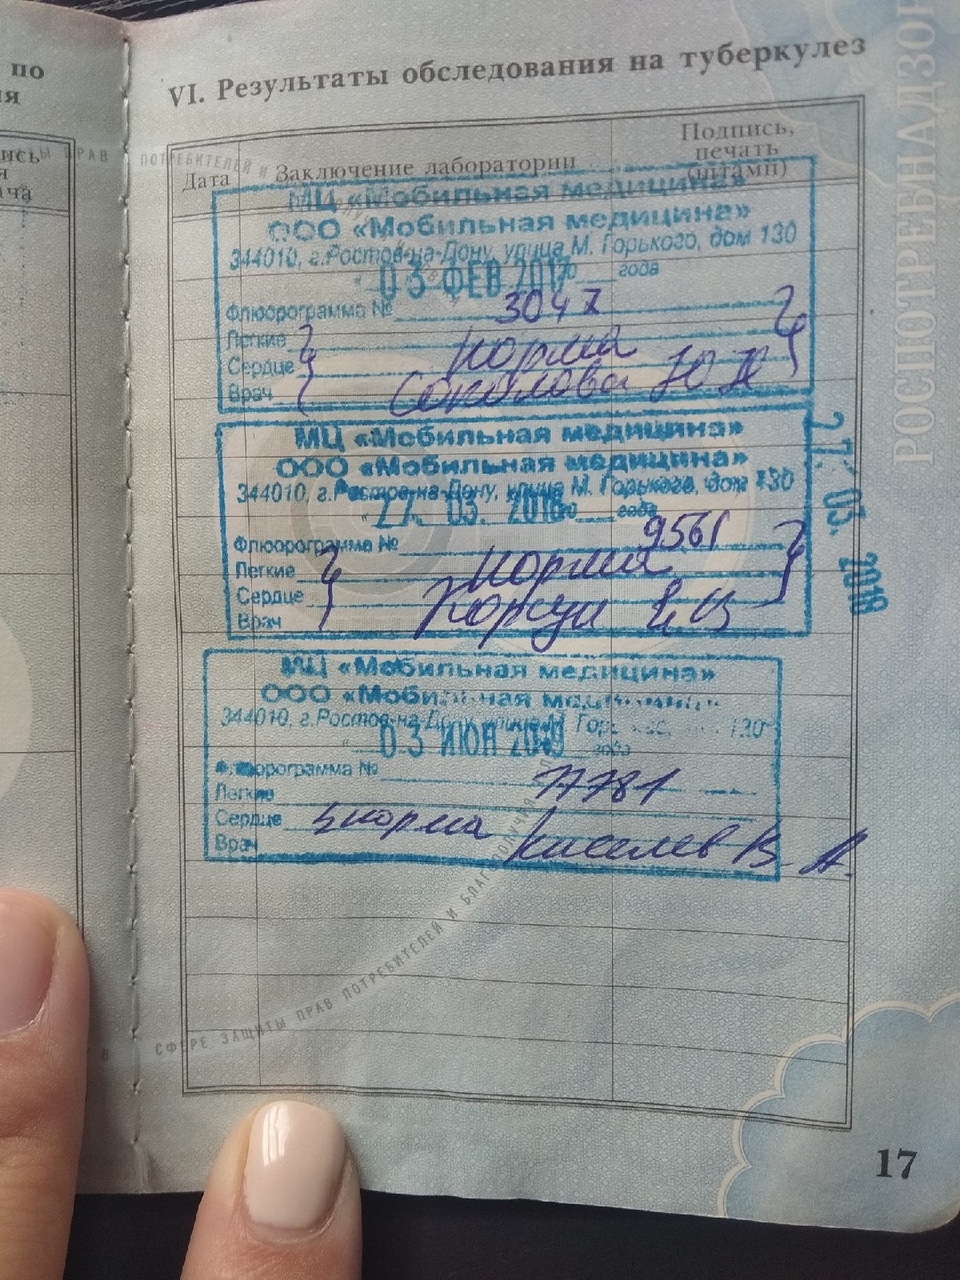 по
я
ись
я
ча
VI. Результаты обследования на туберкулез
Дата
Заключение лаборатории
Подпись,
печать
(штамп)
МЦ «Мобильная медицина»
ООО «Мобильная медицина»
344010, г.Ростов-на-Дону, улица М. Горького, дом 130
03 ФЕВ 2017 года
Флюорограмма № 3047
Легкие
Сердце норма
Врач Соколова Ю
МЦ «Мобильная медицина»
ООО «Мобильная медицина»
344010, г.Ростов-на-Дону, улица М. Горького, дом 130
27. 03. 2018 года
27. 03. 2018
Флюорограмма № 9561
Легкие норма
Сердце
Врач
МЦ «Мобильная медицина»
ООО «Мобильная
344010, г.Ростов-на-Дону, улица М. 130
03 ИЮН 2019 года
Флюорограмма № 7781
Легкие
Сердце норма
Врач Киселев В. А.
СФЕРЕ ЗАЩИТЫ ПРАВ ПОТРЕБИТЕЛЕЙ И БЛАГОПОЛУЧИЯ
РОСПОТРЕБНАДЗОР
17